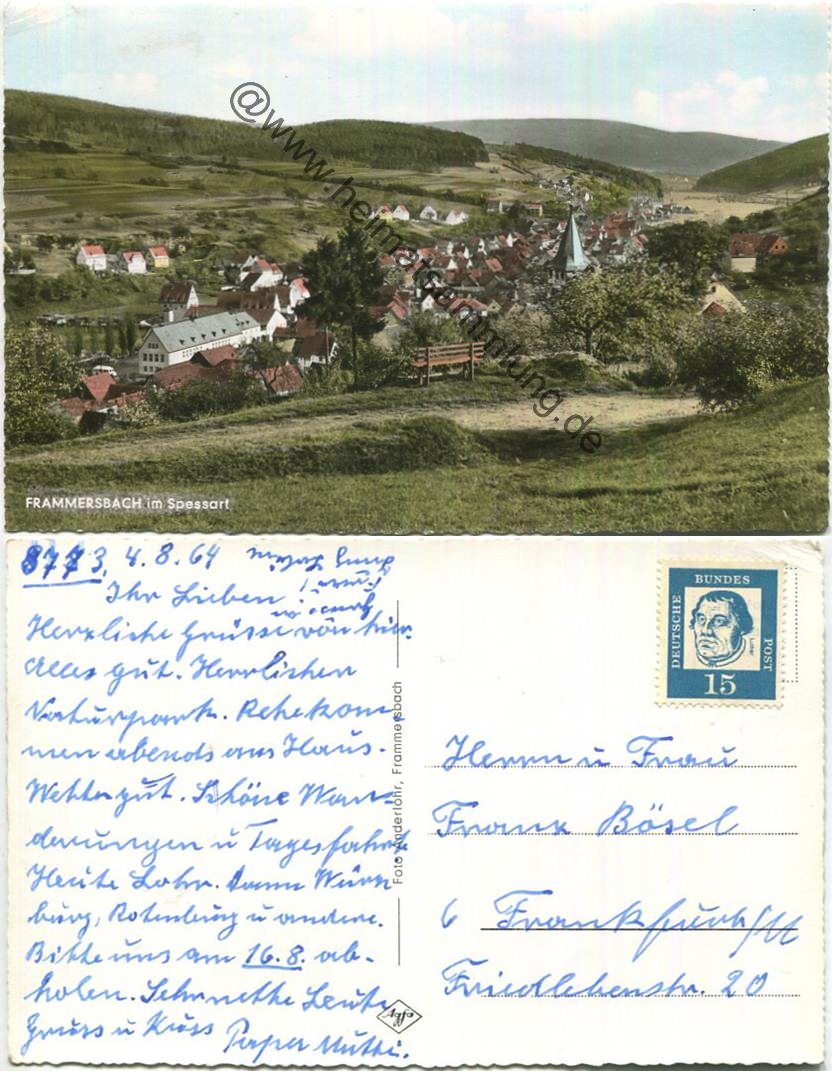 @www.heimatsammlung.de
FRAMMERSBACH im Spessart
8773, 4.8.64
Ihr Lieben!
Herzliche Grüsse von hier.
Alles gut. Herrlicher
Naturpark. Rehe kom-
men abends ans Haus.
Wetter gut. Schöne Wan-
derungen u Tagesfahrt.
Heute Lohr. Dann Würz
burg, Rotenburg u andere.
Bitte uns am 16.8. ab-
holen. Sehr nette Leute
Gruss u Kuss
Papa Mutti.
Foto Anderlohr, Frammersbach
Agfa
DEUTSCHE BUNDES POST
Luther
15
Herrn u Frau
Franz Bösel
6 Frankfurt/M
Friedlebenstr. 20